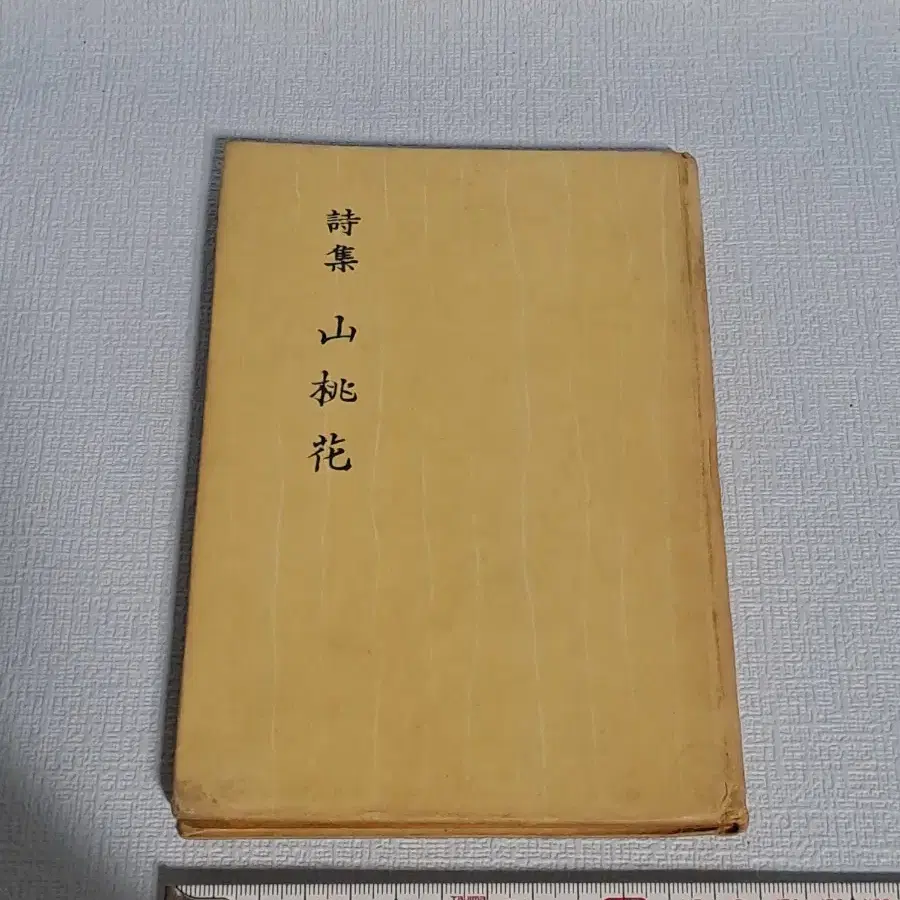 詩集 山桃花
Tajima